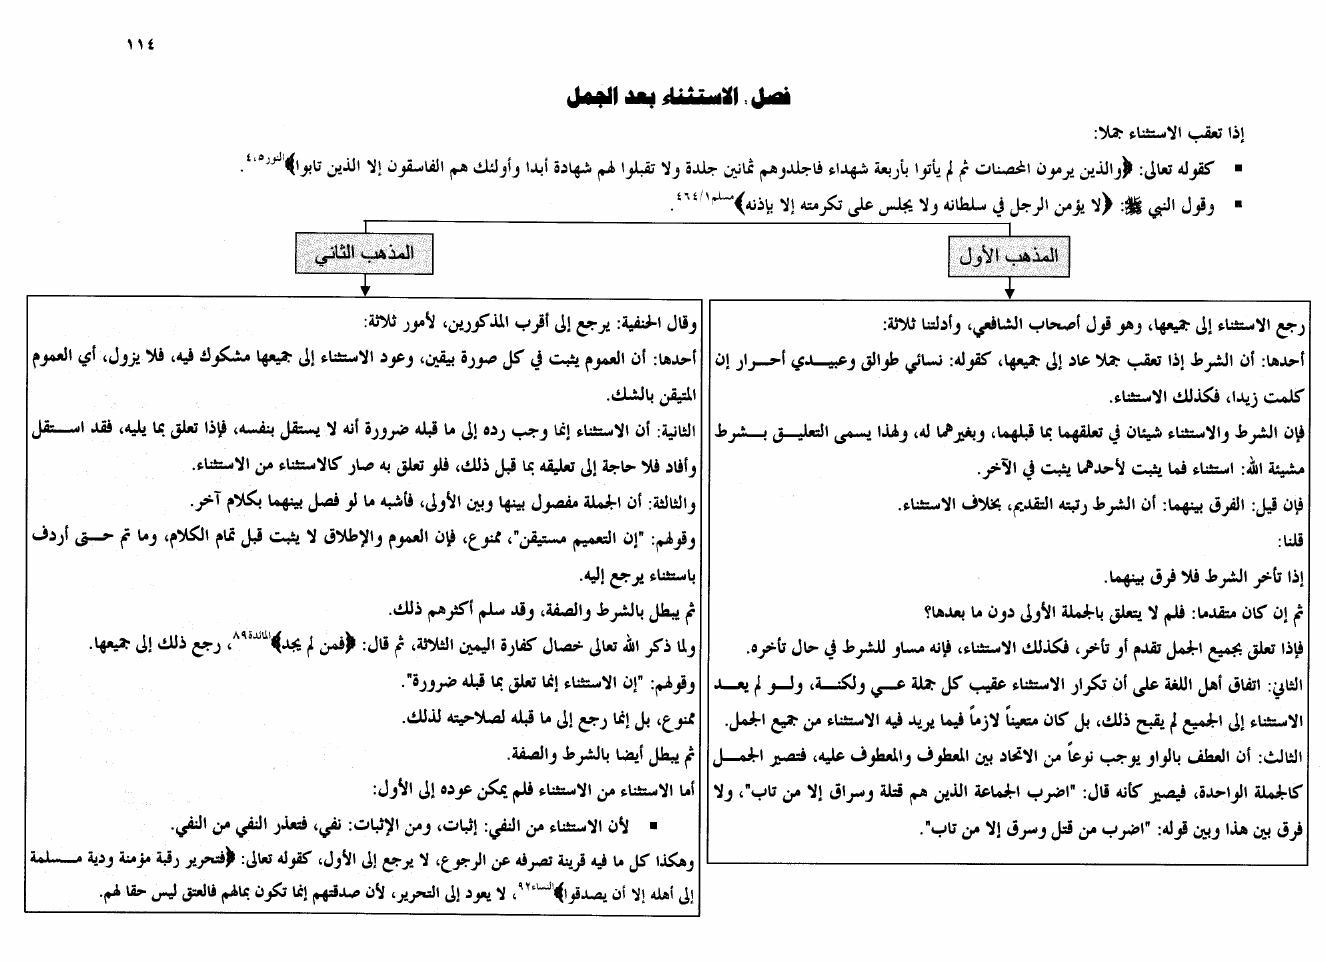 ١١٤
فصل: الاستثناء بعد الجمل
إذا تعقب الاستثناء جملا:
▪ كقوله تعالى: ﴿والذين يرمون المحصنات ثم لم يأتوا بأربعة شهداء فاجلدوهم ثمانين جلدة ولا تقبلوا لهم شهادة أبدا وأولئك هم الفاسقون إلا الذين تابوا﴾النور٤،٥.
▪ وقول النبي ﷺ: ﴿لا يؤمن الرجل في سلطانه ولا يجلس على تكرمته إلا بإذنه﴾مسلم٤٦٤/١.
المذهب الأول
رجع الاستثناء إلى جميعها، وهو قول أصحاب الشافعي، وأدلتنا ثلاثة:
أحدها: أن الشرط إذا تعقب جملا عاد إلى جميعها، كقوله: نسائي طوالق وعبيدي أحرار إن
كلمت زيدا، فكذلك الاستثناء.
فإن الشرط والاستثناء شيئان في تعلقهما بما قبلهما، وبغيرهما له، ولهذا يسمى التعليق بشرط
مشيئة الله: استثناء فما يثبت لأحدهما يثبت في الآخر.
فإن قيل: الفرق بينهما: أن الشرط رتبته التقديم، بخلاف الاستثناء.
قلنا:
إذا تأخر الشرط فلا فرق بينهما.
ثم إن كان متقدما: فلم لا يتعلق بالجملة الأولى دون ما بعدها؟
فإذا تعلق بجميع الجمل تقدم أو تأخر، فكذلك الاستثناء، فإنه مساو للشرط في حال تأخره.
الثاني: اتفاق أهل اللغة على أن تكرار الاستثناء عقيب كل جملة عي ولكنة، ولو لم يعد
الاستثناء إلى الجميع لم يقبح ذلك، بل كان متعيناً لازماً فيما يريد فيه الاستثناء من جميع الجمل.
الثالث: أن العطف بالواو يوجب نوعاً من الاتحاد بين المعطوف والمعطوف عليه، فتصير الجمل
كالجملة الواحدة، فيصير كأنه قال: "اضرب الجماعة الذين هم قتلة وسراق إلا من تاب"، ولا
فرق بين هذا وبين قوله: "اضرب من قتل وسرق إلا من تاب".
المذهب الثاني
وقال الحنفية: يرجع إلى أقرب المذكورين، لأمور ثلاثة:
أحدها: أن العموم يثبت في كل صورة بيقين، وعود الاستثناء إلى جميعها مشكوك فيه، فلا يزول، أي العموم
المتيقن بالشك.
الثانية: أن الاستثناء إنما وجب رده إلى ما قبله ضرورة أنه لا يستقل بنفسه، فإذا تعلق بما يليه، فقد استقل
وأفاد فلا حاجة إلى تعليقه بما قبل ذلك، فلو تعلق به صار كالاستثناء من الاستثناء.
والثالثة: أن الجملة مفصول بينها وبين الأولى، فأشبه ما لو فصل بينهما بكلام آخر.
وقولهم: "إن التعميم مستيقن"، ممنوع، فإن العموم والإطلاق لا يثبت قبل تمام الكلام، وما تم حتى أردف
باستثناء يرجع إليه.
ثم يبطل بالشرط والصفة، وقد سلم أكثرهم ذلك.
ولما ذكر الله تعالى خصال كفارة اليمين الثلاثة، ثم قال: ﴿فمن لم يجد﴾المائدة٨٩، رجع ذلك إلى جميعها.
وقولهم: "إن الاستثناء إنما تعلق بما قبله ضرورة".
ممنوع، بل إنما رجع إلى ما قبله لصلاحيته لذلك.
ثم يبطل أيضا بالشرط والصفة.
أما الاستثناء من الاستثناء فلم يمكن عوده إلى الأول:
▪ لأن الاستثناء من النفي: إثبات، ومن الإثبات: نفي، فتعذر النفي من النفي.
وهكذا كل ما فيه قرينة تصرفه عن الرجوع، لا يرجع إلى الأول، كقوله تعالى: ﴿فتحرير رقبة مؤمنة ودية مسلمة
إلى أهله إلا أن يصدقوا﴾النساء٩٢، لا يعود إلى التحرير، لأن صدقتهم إنما تكون بمالهم فالعتق ليس حقا لهم.